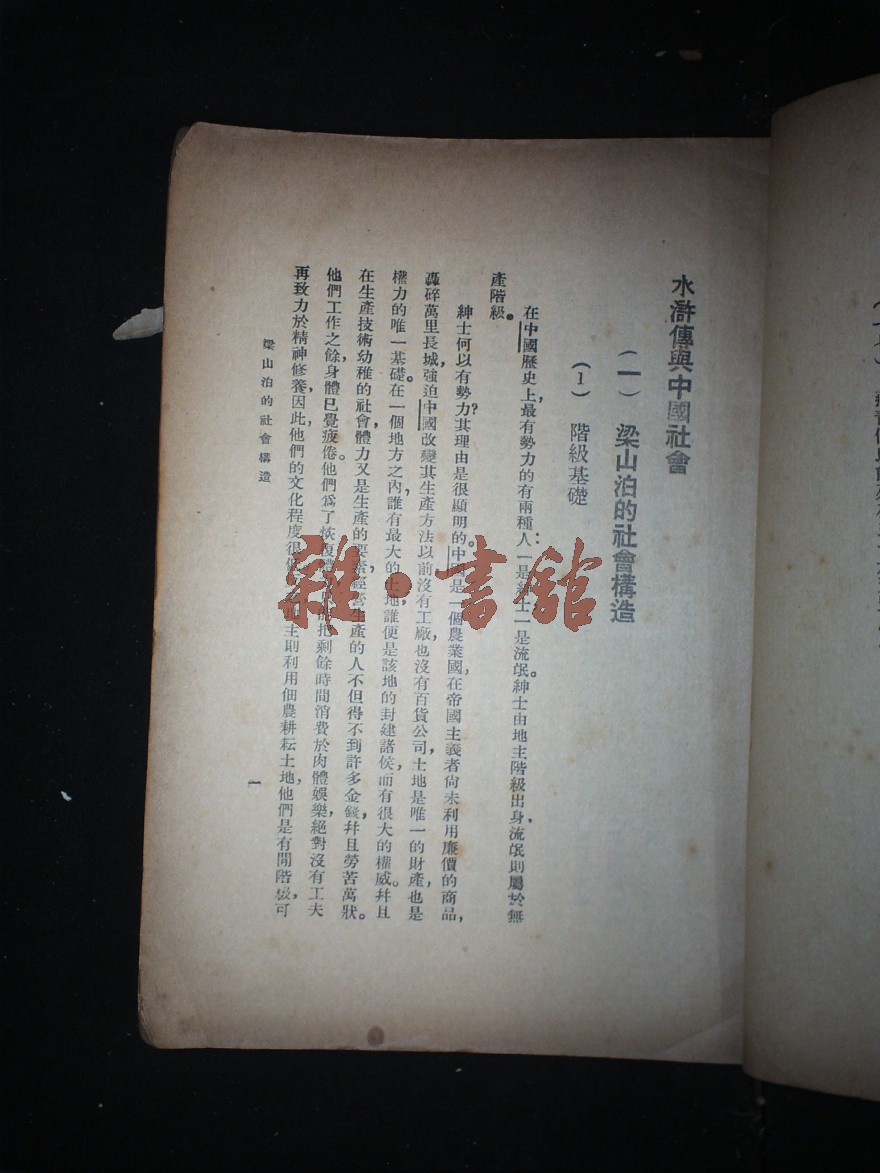 水滸傳與中國社會
(一) 梁山泊的社會構造
(1) 階級基礎
在中國歷史上,最有勢力的有兩種人:一是紳士一是流氓。紳士由地主階級出身,流氓則屬於無
產階級。
紳士何以有勢力?其理由是很顯明的。中國是一個農業國,在帝國主義者尙未利用廉價的商品,
轟碎萬里長城,強迫中國改變其生產方法以前沒有工廠,也沒有百貨公司,土地是唯一的財產,也是
權力的唯一基礎。在一個地方之內,誰有最大的土地,誰便是該地的封建諸侯,而有很大的權威。幷且
在生產技術幼稚的社會,體力又是生產的要素,經營生產的人不但得不到許多金錢,幷且勞苦萬狀。
他們工作之餘,身體已覺疲倦。他們爲了恢復體 把剩餘時間消費於肉體娛樂,絕對沒有工夫
再致力於精神修養,因此,他們的文化程度很 主則利用佃農耕耘土地,他們是有閒階級,可
梁山泊的社會構造
一
雜·書館